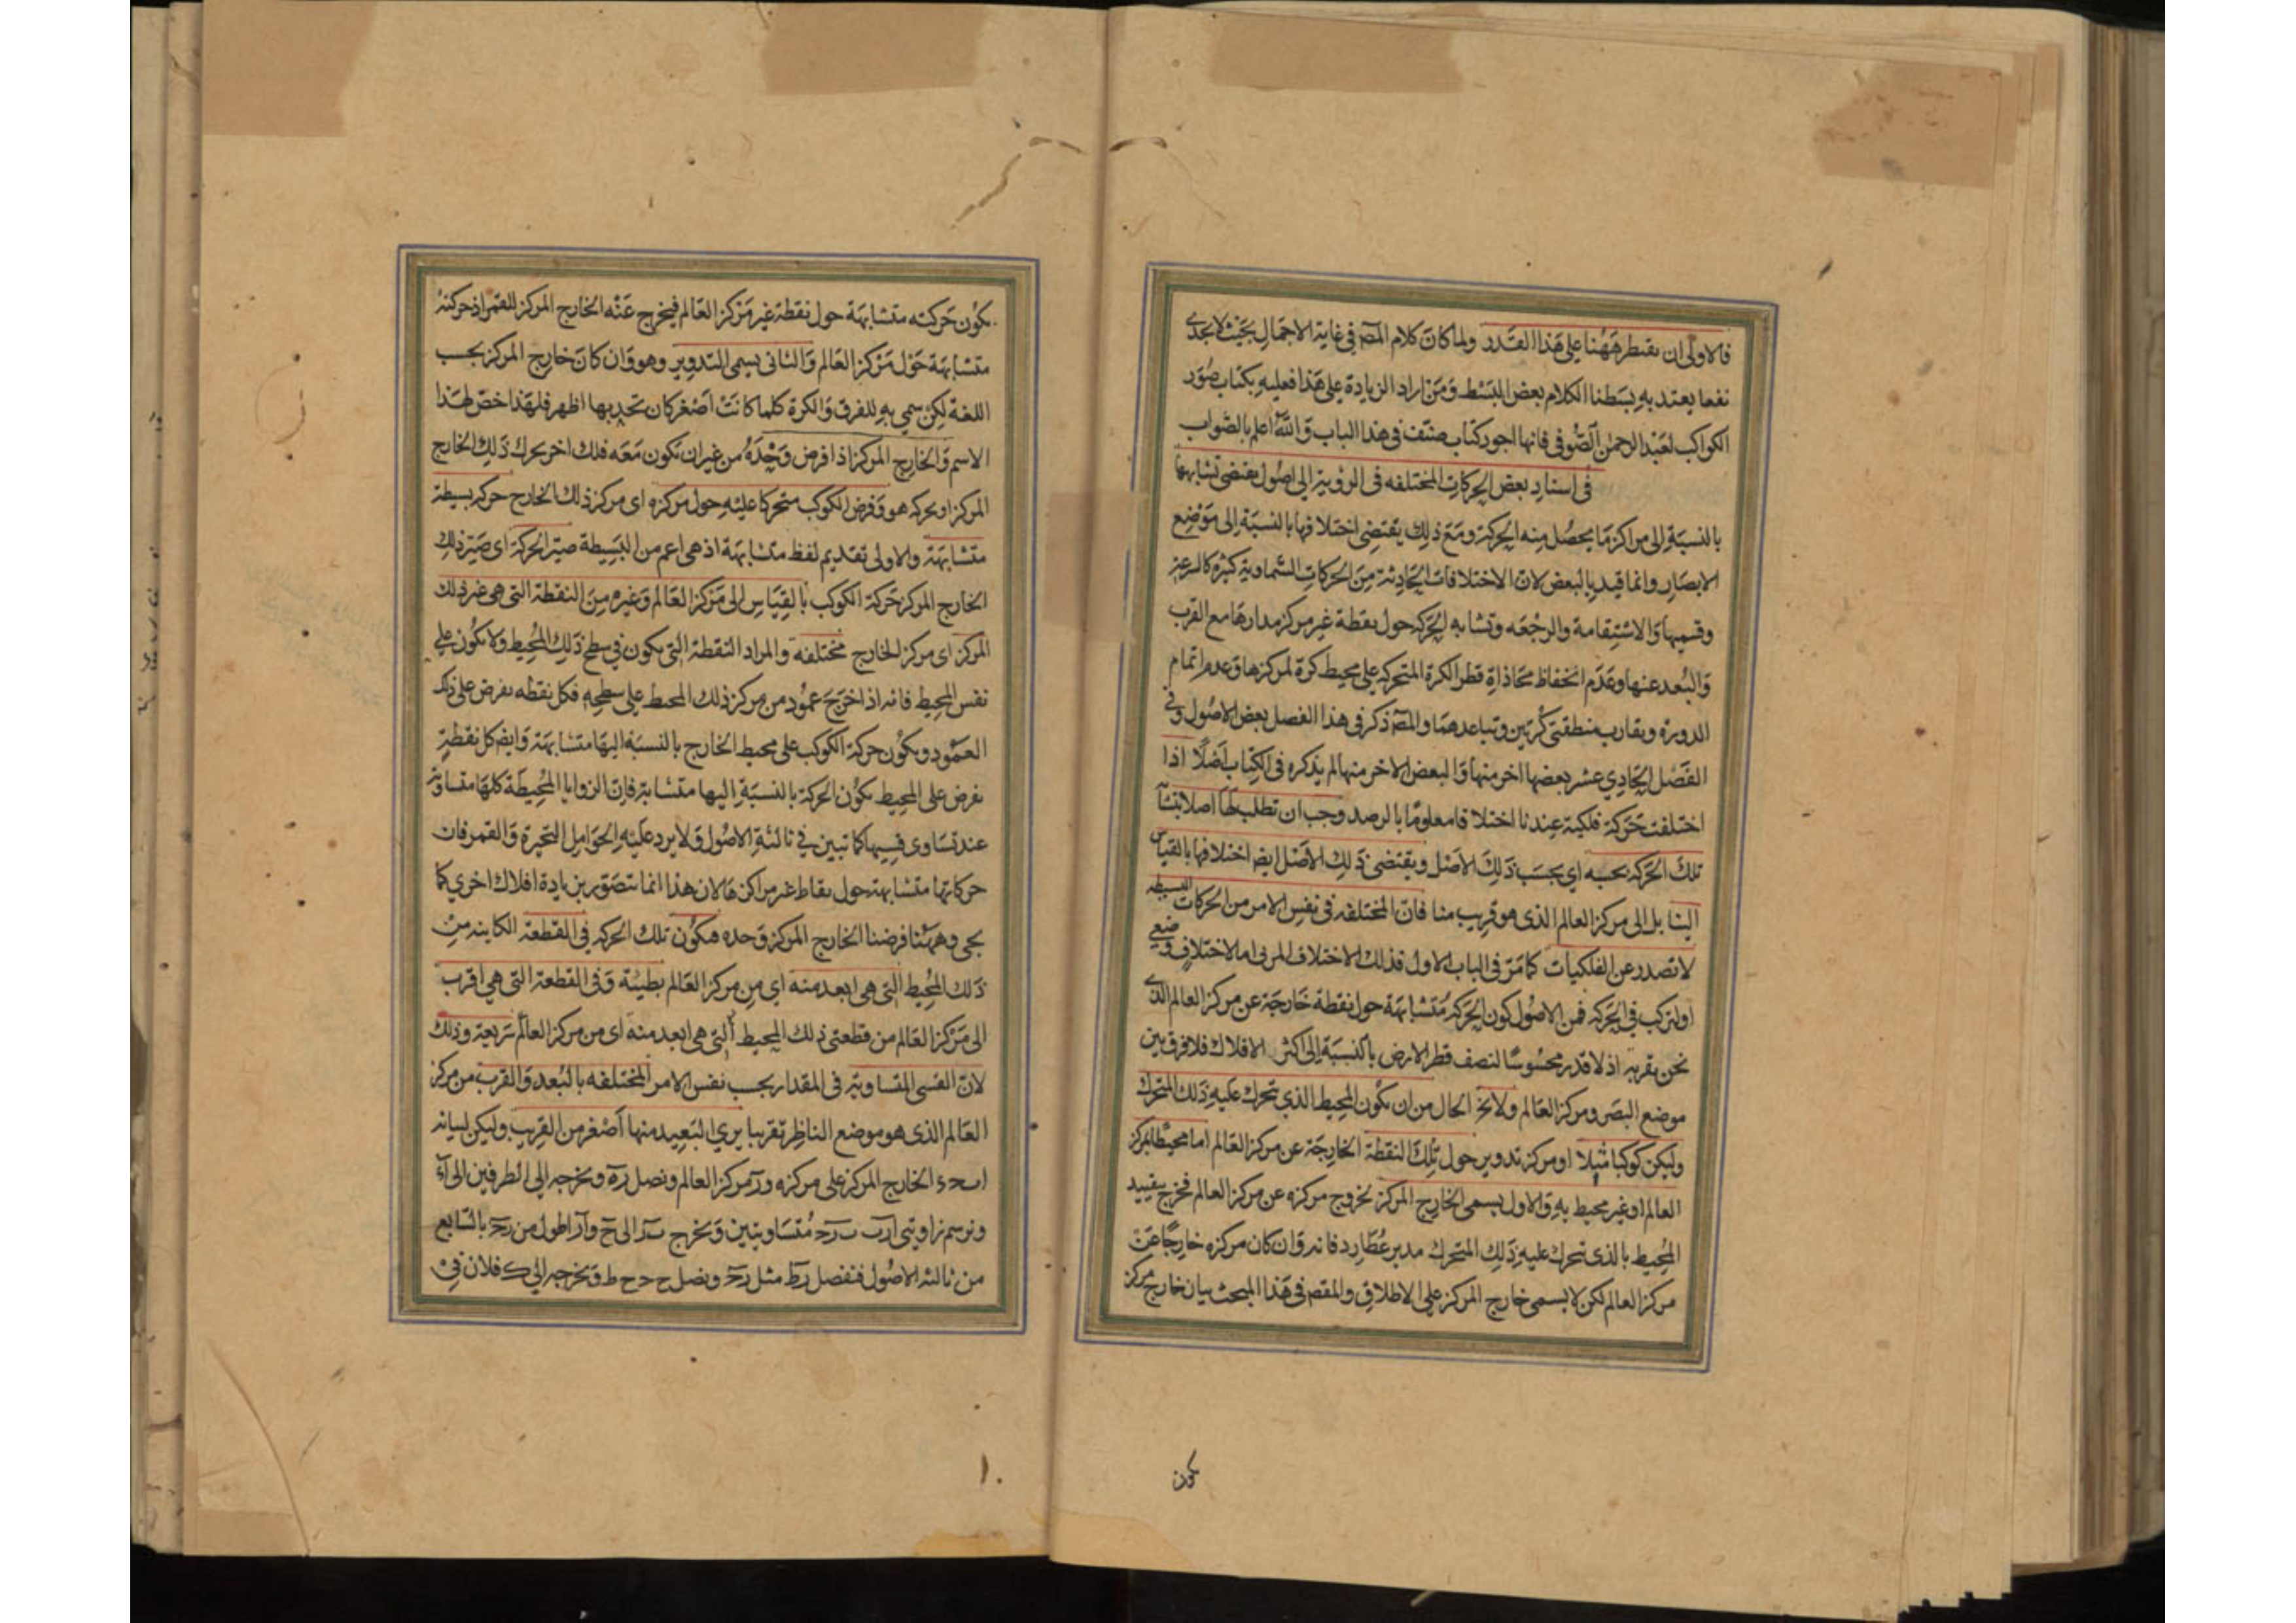 فالاولى ان يقتطر ههنا على هذا القدر ولما كان كلام المصه في غاية الاجمال بحيث لا يجدى
نفعا يعتد به بسطنا الكلام بعض البسط ومن اراد الزيادة على هذا فعليه بكتاب صور
الكواكب لعبد الرحمن الصوفى فانها اجود كتاب صنف فى هذا الباب والله اعلم بالصواب
فى اسناد بعض الحركات المختلفه فى الرؤية الى اصول يقتضى تشابهها
بالنسبة الى مراكز ما يحصل منه الحركة ومع ذلك يقتضى اختلافها بالنسبة الى موضع
الابصار وانما قيد بالبعض لان الاختلافات الحادثة من الحركات السماوية كثيرة كالسرعة
وقسيمها والاستقامة والرجعه وتشابه الحركه حول نقطة غير مركز مدارها مع القرب
والبعد عنها وعدم انحفاظ محاذاة قطر الكرة المتحركه على محيط كرة لمركزها وعدم اتمام
الدوره وتقارب منطقتى كرتين وتباعدهما والمصه ذكر فى هذا الفصل بعض الاصول وفى
الفصل الحادي عشر بعضها اخر منها والبعض الاخر منها لم يذكره فى الكتاب اصلا اذا
اختلفت حركة فلكية عندنا اختلافا معلوما بالرصد وجب ان تطلب لها اصلا يتشابه
تلك الحركه بحسبه اي بحسب ذلك الاصل ويقتضى ذلك الاصل ايضا اختلافها بالقياس
الينا بل الى مركز العالم الذى هو قريب منا فان المختلفه فى نفس الامر من الحركات البسيطه
لا تصدر عن الفلكيات كما مر فى الباب الاول فذلك الاختلاف المرئى اما لاختلاف وضعي
او لتركب في الحركه فمن الاصول كون الحركة متشابهة حول نقطة خارجة عن مركز العالم الذى
نحن بقربه اذ لا قدر محسوسا لنصف قطر الارض بالنسبة الى اكثر الافلاك فلا فرق بين
موضع البصر ومركز العالم ولا يخ الحال من ان يكون المحيط الذي تحرك عليه ذلك المتحرك
وليكن كوكبا مثلا او مركز تدوير حول تلك النقطة الخارجة عن مركز العالم اما محيطا بمركز
العالم او غير محيط به والاول يسمى الخارج المركز لخروج مركزه عن مركز العالم فخرج بتقييد
المحيط بالذى تحرك عليه ذلك المتحرك مدير عطارد فانه وان كان مركزه خارجا عن
مركز العالم لكن لا يسمى خارج المركز على الاطلاق والمقصم فى هذا المبحث بيان خارج مركز
كون
يكون حركته متشابهة حول نقطة غير مركز العالم فيخرج عنه الخارج المركز للقمر اذ حركته
متشابهة حول مركز العالم والثانى يسمى التدوير وهو وان كان خارج المركز بحسب
اللغة لكن سمي به للفرق والكرة كلما كانت اصغر كان تحدبها اظهر فلهذا خص لهذا
الاسم والخارج المركز اذا فرض وحده من غير ان تكون معه فلك اخر يحرك ذلك الخارج
المركز او يحركه هو وفرض الكوكب متحركا عليه حول مركزه اى مركز ذلك الخارج حركه بسيطة
متشابهة والاولى تقديم لفظ متشابهة اذ هى اعم من البسيطة صير الحركة اى صير ذلك
الخارج المركز حركة الكوكب بالقياس الى مركز العالم وغيره من النقطة التى هى غير ذلك
المركز اى مركز الخارج مختلفه والمراد النقطة التى يكون في سطح ذلك المحيط ولا يكون على
نفس المحيط فانه اذا خرج عمود من مركز ذلك المحيط على سطحه فكل نقطه يفرض على ذلك
العمود ويكون حركة الكوكب على محيط الخارج بالنسبة اليها متشابهة وايضه كل نقطة
يفرض على المحيط يكون الحركة بالنسبة اليها متشابهة فان الزوايا المحيطة كلها متساوية
عند تساوى قسيها كما تبين في ثالثة الاصول ولا يرد عليه الحوامل المتحيرة والقمر فان
حركاتها متشابهة حول نقاط غير مراكزها لان هذا انما يتصور بزيادة افلاك اخرى كما
يجى وههنا فرضنا الخارج المركز وحده فيكون تلك الحركه في القطعة الكاينه من
ذلك المحيط التى هى ابعد منه اى من مركز العالم بطيئة وفى القطعة التى هي اقرب
الى مركز العالم من قطعتى ذلك المحيط التى هى ابعد منه اى من مركز العالم سريعة وذلك
لان القسى المتساوية فى المقدار بحسب نفس الامر المختلفه بالبعد والقرب من مركز
العالم الذى هو موضع الناظر تقريبا يرى البعيد منها اصغر من القريب وليكن لبيانه
الخارج المركز على مركزه مركز العالم ونصل ونخرجه الى الطرفين الى
ونرسم زاويتى متساويتين ونخرج الى اطول من بالسابع
من ثالثه الاصول فنفصل مثل ونصل ونخرجه الى فلان في
١٠